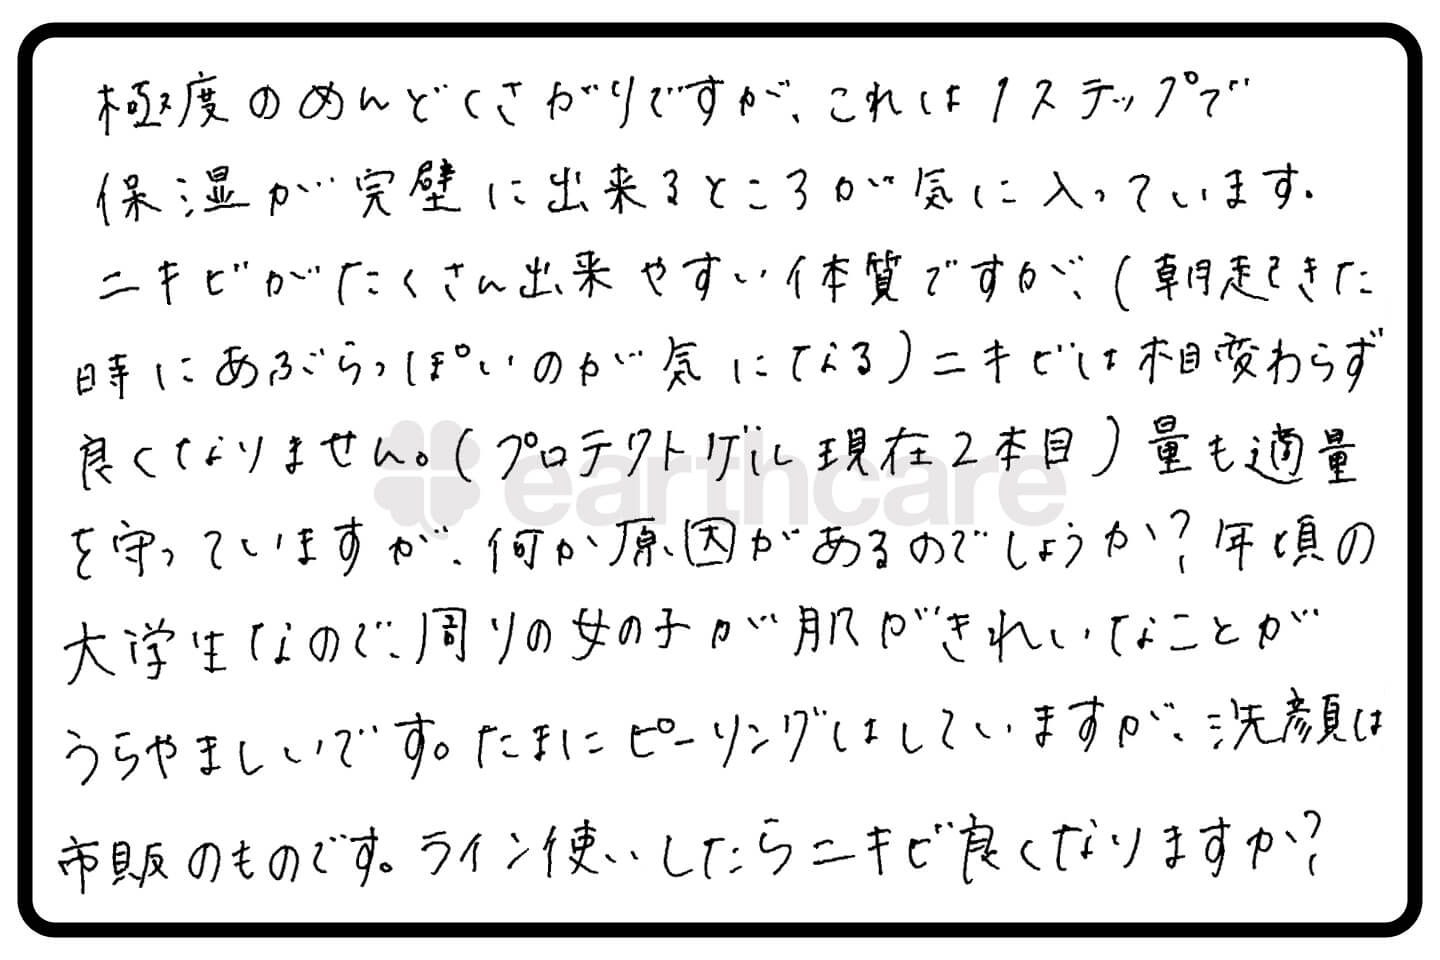 極度のめんどくさがりですが、これは1ステップで
保湿が完璧に出来るところが気に入っています。
ニキビがたくさん出来やすい体質ですが、(朝起きた
時にあぶらっぽいのが気になる)ニキビは相変わらず
良くなりません。(プロテクトゲル現在2本目)量も適量
を守っていますが、何か原因があるのでしょうか?年頃の
大学生なので、周りの女の子が肌がきれいなことが
うらやましいです。たまにピーリングはしていますが、洗顔は
市販のものです。ライン使いしたらニキビ良くなりますか?
earthcare